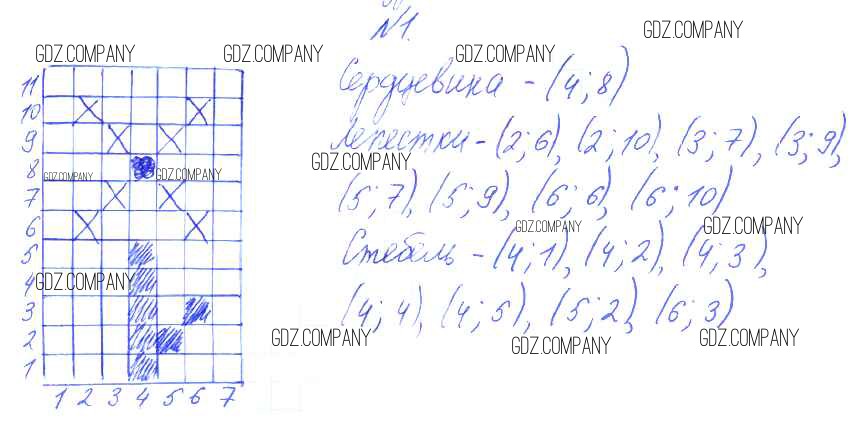 №1.
GDZ.COMPANY GDZ.COMPANY GDZ.COMPANY GDZ.COMPANY
Сердцевина - (4; 8)
Лепестки - (2; 6), (2; 10), (3; 7), (3; 9),
GDZ.COMPANY
(5; 7), (5; 9), (6; 6), (6; 10)
GDZ.COMPANY GDZ.COMPANY
Стебель - (4; 1), (4; 2), (4; 3),
(4; 4), (4; 5), (5; 2), (6; 3)
GDZ.COMPANY GDZ.COMPANY GDZ.COMPANY
11
10
9
8 GDZ.COMPANY GDZ.COMPANY
7
6
5
4 GDZ.COMPANY
3
2
1
1 2 3 4 5 6 7